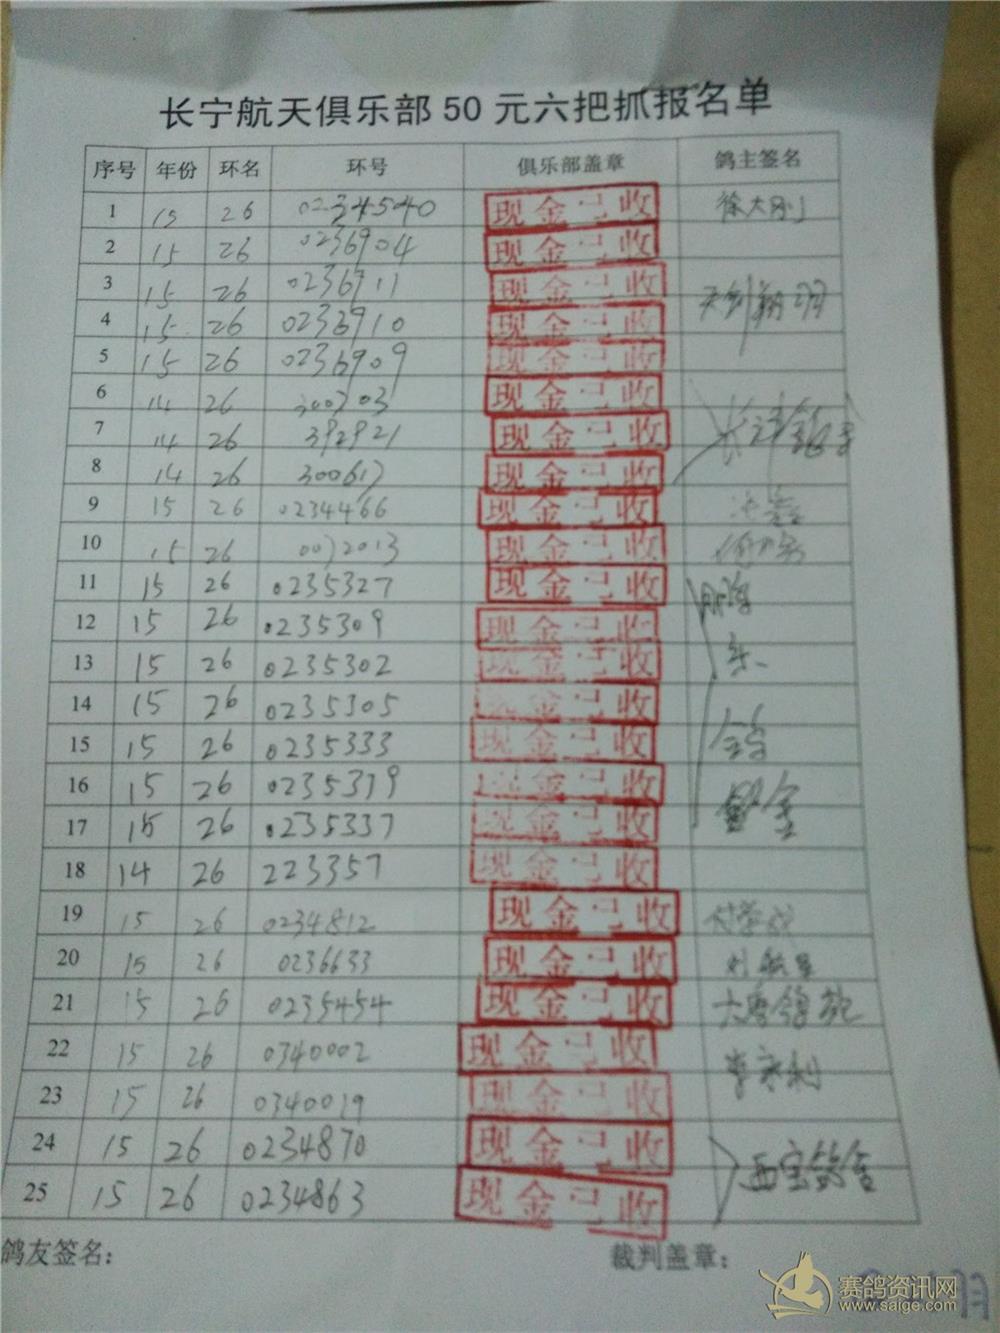 长宁航天俱乐部50元六把抓报名单
序号 年份 环名 环号 俱乐部盖章 鸽主签名
1 15 26 0234540 现金已收 徐大刚
2 15 26 0236904 现金已收
3 15 26 0236911 现金已收
4 15 26 0236910 现金已收
5 15 26 0236909 现金已收
6 14 26 300703 现金已收
7 14 26 392921 现金已收
8 14 26 300617 现金已收
9 15 26 0234466 现金已收
10 15 26 0072013 现金已收
11 15 26 0235327 现金已收
12 15 26 0235309 现金已收
13 15 26 0235302 现金已收
14 15 26 0235305 现金已收
15 15 26 0235333 现金已收
16 15 26 0235319 现金已收
17 15 26 0235337 现金已收
18 14 26 223357 现金已收
19 15 26 0234812 现金已收
20 15 26 0236633 现金已收
21 15 26 0235454 现金已收
22 15 26 0340002 现金已收 李永利
23 15 26 0340019 现金已收
24 15 26 0234870 现金已收
25 15 26 0234863 现金已收 西宝鸽舍
鸽友签名： 裁判盖章：
赛鸽资讯网
www.saige.com